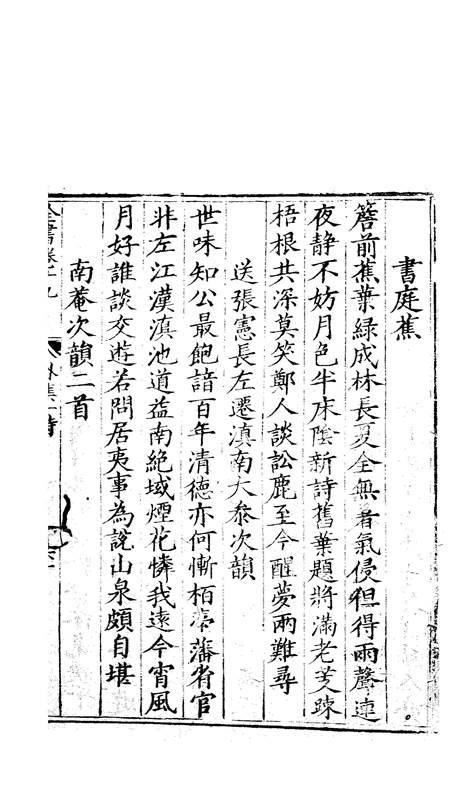 書庭蕉
簷前蕉葉綠成林長夏全無暑氣侵但得雨聲連
夜靜不妨月色半床陰新詩舊葉題將滿老芰踈
梧根共深莫笑鄭人談訟鹿至今醒夢兩難尋
送張憲長左遷滇南大叅次韻
世味知公最飽諳百年清德亦何慚栢臺藩省官
非左江漢滇池道益南絶域煙花憐我遠今宵風
月好誰談交遊若問居夷事為説山泉頗自堪
南菴次韻二首